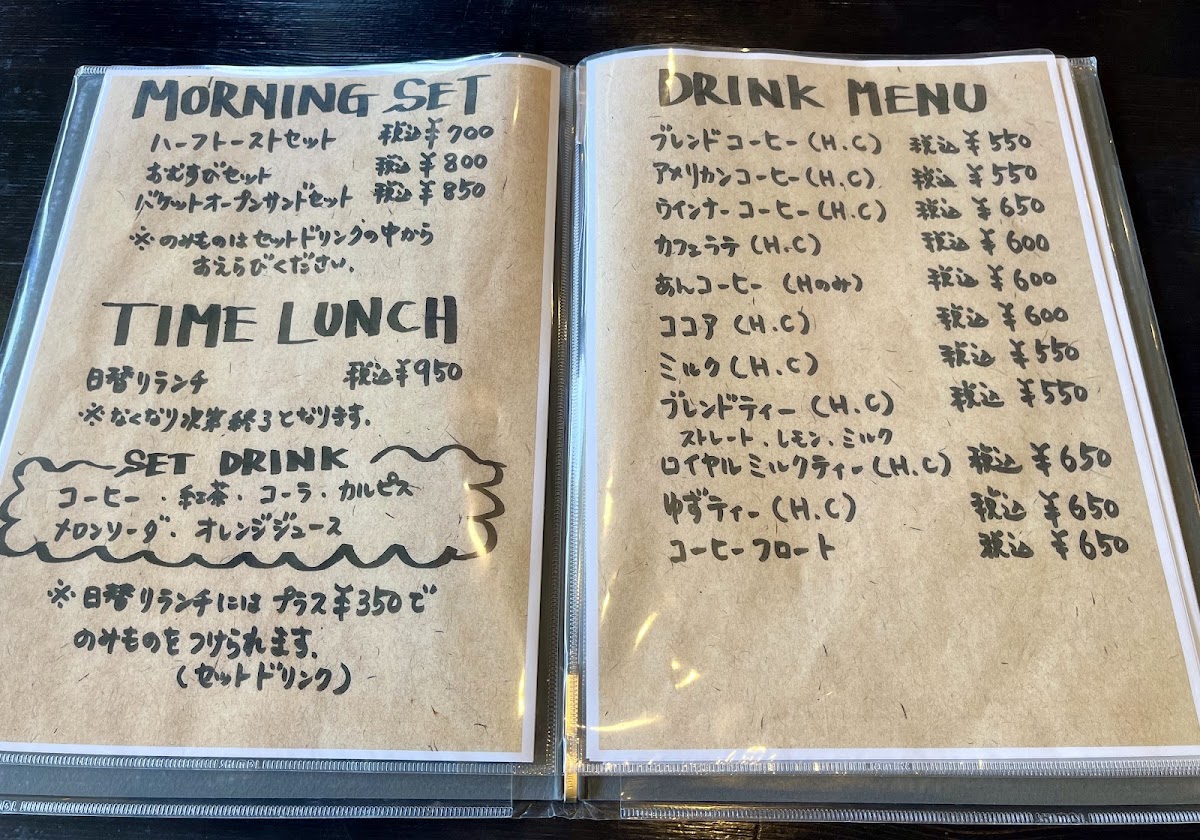 MORNING SET
ハーフトーストセット 税込¥700
おむすびセット 税込¥800
バケットオープンサンドセット 税込¥850
※のみものはセットドリンクの中から
おえらびください.
TIME LUNCH
日替りランチ 税込¥950
※なくなり次第終了となります.
SET DRINK
コーヒー・紅茶・コーラ・カルピス
メロンソーダ・オレンジジュース
※日替りランチには プラス¥350で
のみものをつけられます.
(セットドリンク)
DRINK MENU
ブレンドコーヒー(H.C) 税込¥550
アメリカンコーヒー(H.C) 税込¥550
ウインナーコーヒー(H.C) 税込¥650
カフェラテ(H.C) 税込¥600
あんコーヒー(Hのみ) 税込¥600
ココア(H.C) 税込¥600
ミルク(H.C) 税込¥550
ブレンドティー(H.C) 税込¥550
ストレート、レモン、ミルク
ロイヤルミルクティー(H.C) 税込¥650
ゆずティー(H.C) 税込¥650
コーヒーフロート 税込¥650